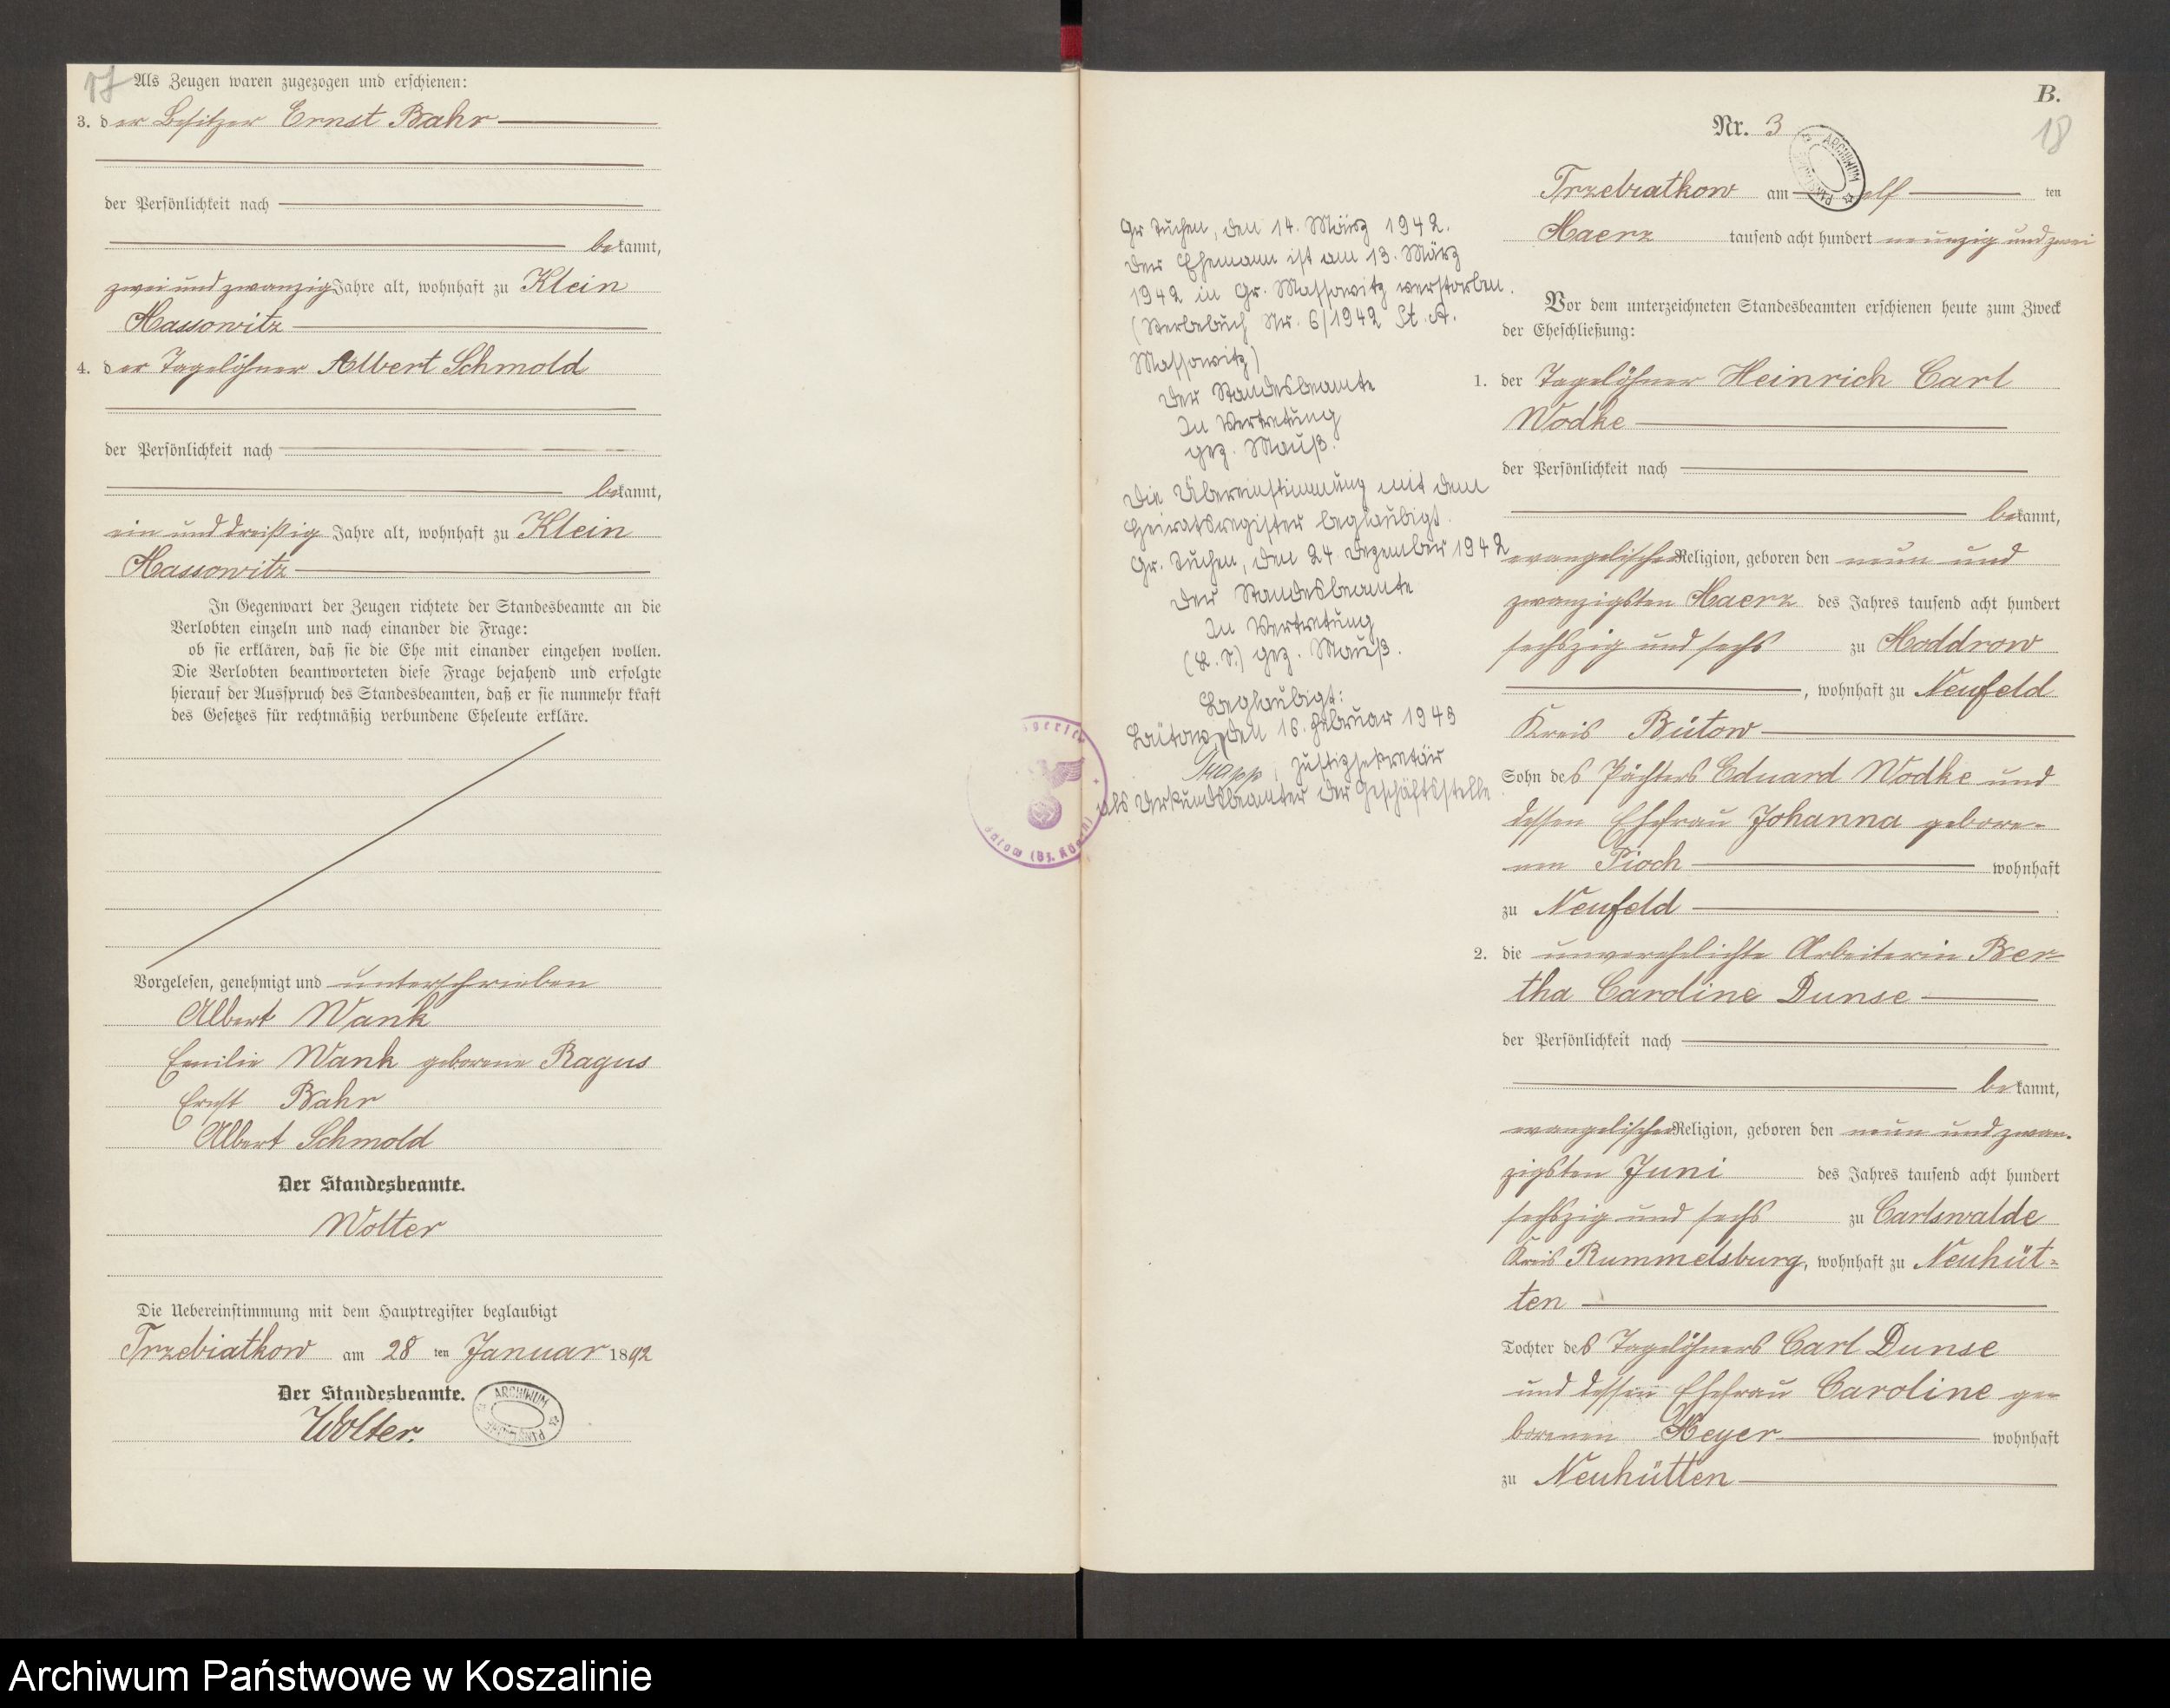 17
Als Zeugen waren zugezogen und erschienen:
3. der Besitzer Ernst Bahr
der Persönlichkeit nach
bekannt,
zwei und zwanzig Jahre alt, wohnhaft zu Klein
Massowitz
4. der Tagelöhner Albert Schmold
der Persönlichkeit nach
bekannt,
ein und dreißig Jahre alt, wohnhaft zu Klein
Massowitz
In Gegenwart der Zeugen richtete der Standesbeamte an die
Verlobten einzeln und nach einander die Frage:
ob sie erklären, daß sie die Ehe mit einander eingehen wollen.
Die Verlobten beantworteten diese Frage bejahend und erfolgte
hierauf der Ausspruch des Standesbeamten, daß er sie nunmehr kraft
des Gesetzes für rechtmäßig verbundene Eheleute erkläre.
Vorgelesen, genehmigt und unterschrieben
Albert Wank
Emilie Wank geborene Ragus
Ernst Bahr
Albert Schmold
Der Standesbeamte.
Wolter
Die Uebereinstimmung mit dem Hauptregister beglaubigt
Trzebiatkow am 28 ten Januar 1892
Der Standesbeamte.
Wolter.
ARCHIWUM
B.
18
Nr. 3
ARCHIWUM
Trzebiatkow am elf ten
Maerz tausend acht hundert neunzig und zwei
Vor dem unterzeichneten Standesbeamten erschienen heute zum Zweck
der Eheschließung:
1. der Tagelöhner Heinrich Carl
Wodke
der Persönlichkeit nach
bekannt,
evangelischer Religion, geboren den neun und
zwanzigsten Maerz des Jahres tausend acht hundert
sechszig und sechs zu Moddrow
, wohnhaft zu Neufeld
Kreis Bütow
Sohn des Pächters Eduard Wodke und
dessen Ehefrau Johanna gebore-
nen Pioch wohnhaft
zu Neufeld
2. die unverehelichte Arbeiterin Ber-
tha Caroline Dunse
der Persönlichkeit nach
bekannt,
evangelischer Religion, geboren den neun und zwan-
zigsten Juni des Jahres tausend acht hundert
sechszig und sechs zu Carlswalde
Kreis Rummelsburg, wohnhaft zu Neuhüt-
ten
Tochter des Tagelöhners Carl Dunse
und dessen Ehefrau Caroline ge-
borenen Meyer wohnhaft
zu Neuhütten
Gr Tuchen, den 14. März 1942.
Der Ehemann ist am 13. März
1942 in Gr. Massowitz verstorben.
(Sterbebuch Nr. 6/1942 St. A.
Massowitz)
Der Standesbeamte
In Vertretung
gez. Mauß.
Die Übereinstimmung mit dem
Heiratsregister beglaubigt.
Gr. Tuchen, den 24. Dezember 1942
Der Standesbeamte
In Vertretung
(L. S.) gez. Mauß.
Beglaubigt:
Bütow, den 16. Februar 1943
Justizsekretär
als Urkundsbeamter der Geschäftsstelle
Archiwum Państwowe w Koszalinie